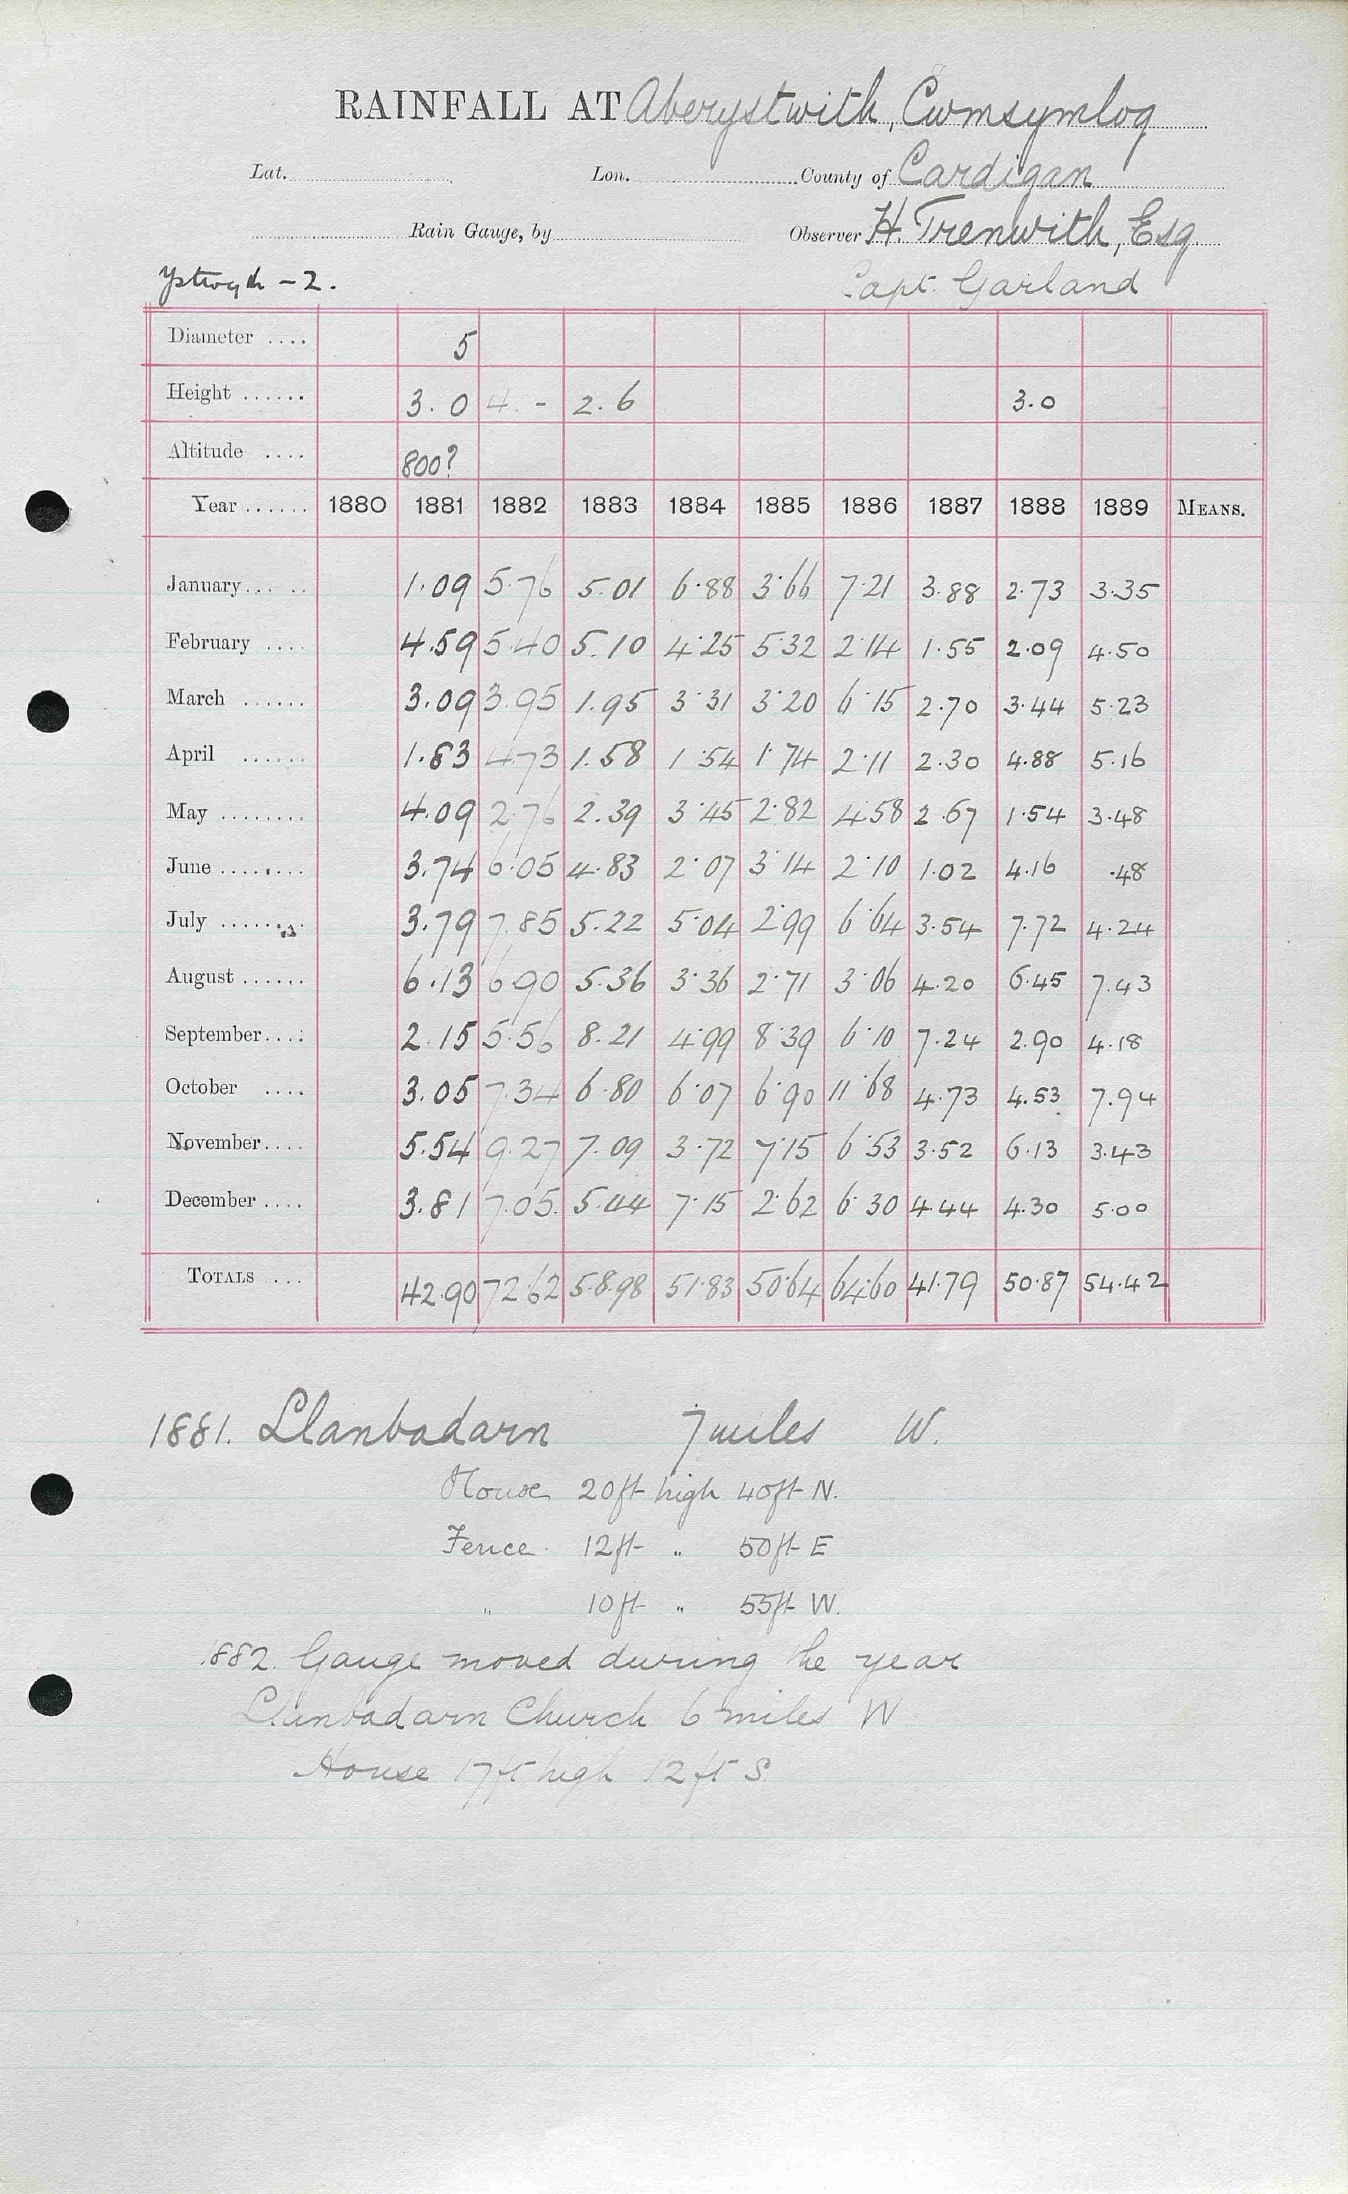 RAINFALL AT Aberystwith, Cwmsymlog
Lat. Lon. County of Cardigan
Rain Gauge, by Observer H. Trenwith, Esq
Ystwyth - 2. Capt. Garland
Diameter .... 5
Height ...... 3.0 4. - 2.6 3.0
Altitude .... 800?
Year ...... 1880 1881 1882 1883 1884 1885 1886 1887 1888 1889 MEANS.
January.... 1.09 5.76 5.01 6.88 3.66 7.21 3.88 2.73 3.35
February .... 4.59 5.40 5.10 4.25 5.32 2.14 1.55 2.09 4.50
March ...... 3.09 3.95 1.95 3.31 3.20 6.15 2.70 3.44 5.23
April ...... 1.83 4.73 1.58 1.54 1.74 2.11 2.30 4.88 5.16
May ........ 4.09 2.76 2.39 3.45 2.82 4.58 2.67 1.54 3.48
June ........ 3.74 6.05 4.83 2.07 3.14 2.10 1.02 4.16 .48
July ........ 3.79 7.85 5.22 5.04 2.99 6.64 3.54 7.72 4.24
August ...... 6.13 6.90 5.36 3.36 2.71 3.06 4.20 6.45 7.43
September.... 2.15 5.56 8.21 4.99 8.39 6.10 7.24 2.90 4.18
October .... 3.05 7.34 6.80 6.07 6.90 11.68 4.73 4.53 7.94
November.... 5.54 9.27 7.09 3.72 7.15 6.53 3.52 6.13 3.43
December .... 3.81 7.05 5.44 7.15 2.62 6.30 4.44 4.30 5.00
TOTALS ... 42.90 72.62 58.98 51.83 50.64 64.60 41.79 50.87 54.42
1881. Llanbadarn 7 miles W.
House 20ft high 40ft N.
Fence 12ft " 50ft E
" 10ft " 55ft W.
1882. Gauge moved during the year
Llanbadarn Church 6 miles W
House 17ft high 12ft S.